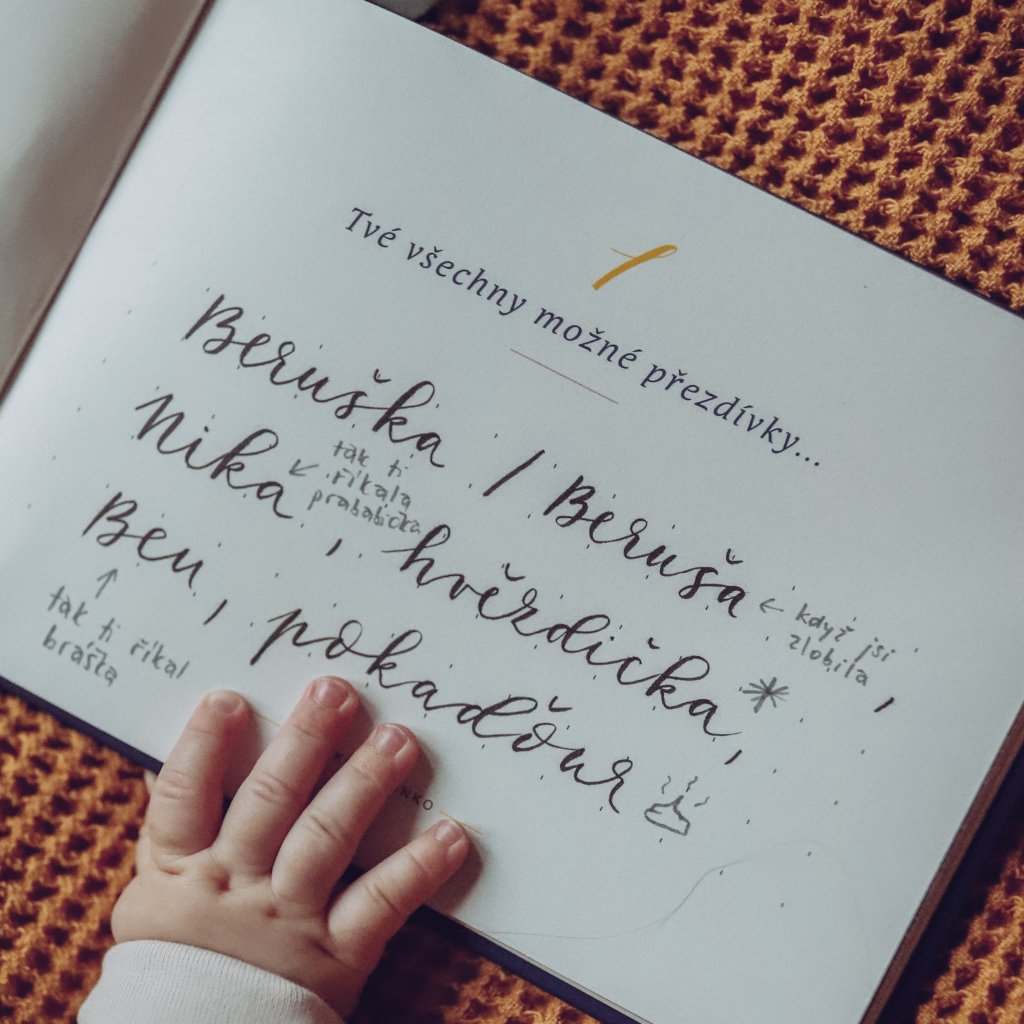 Tvé všechny možné přezdívky...
Beruška / Beruša ← když jsi zlobila,
Nika ← tak ti říkala prababička, hvězdička,
Beu, pokaďour
↑ tak ti říkal braška